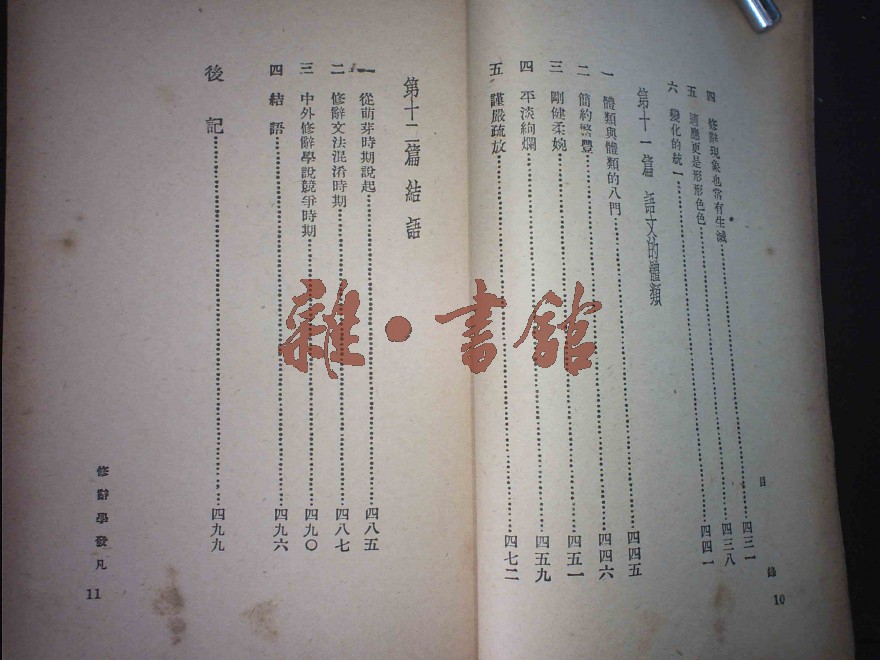 目錄 10
四 修辭現象也常有生滅……四三一
五 適應更是形形色色……四三八
六 變化的統一……四四一
第十一篇 語文的體類
一 體類與體類的八門……四四五
二 簡約繁豐……四四六
三 剛健柔婉……四五一
四 平淡絢爛……四五九
五 謹嚴疏放……四七二
第十二篇 結語
一 從萌芽時期說起……四八五
二 修辭文法混淆時期……四八七
三 中外修辭學說競爭時期……四九〇
四 結語……四九六
後記……四九九
修辭學發凡 11
雜·書館